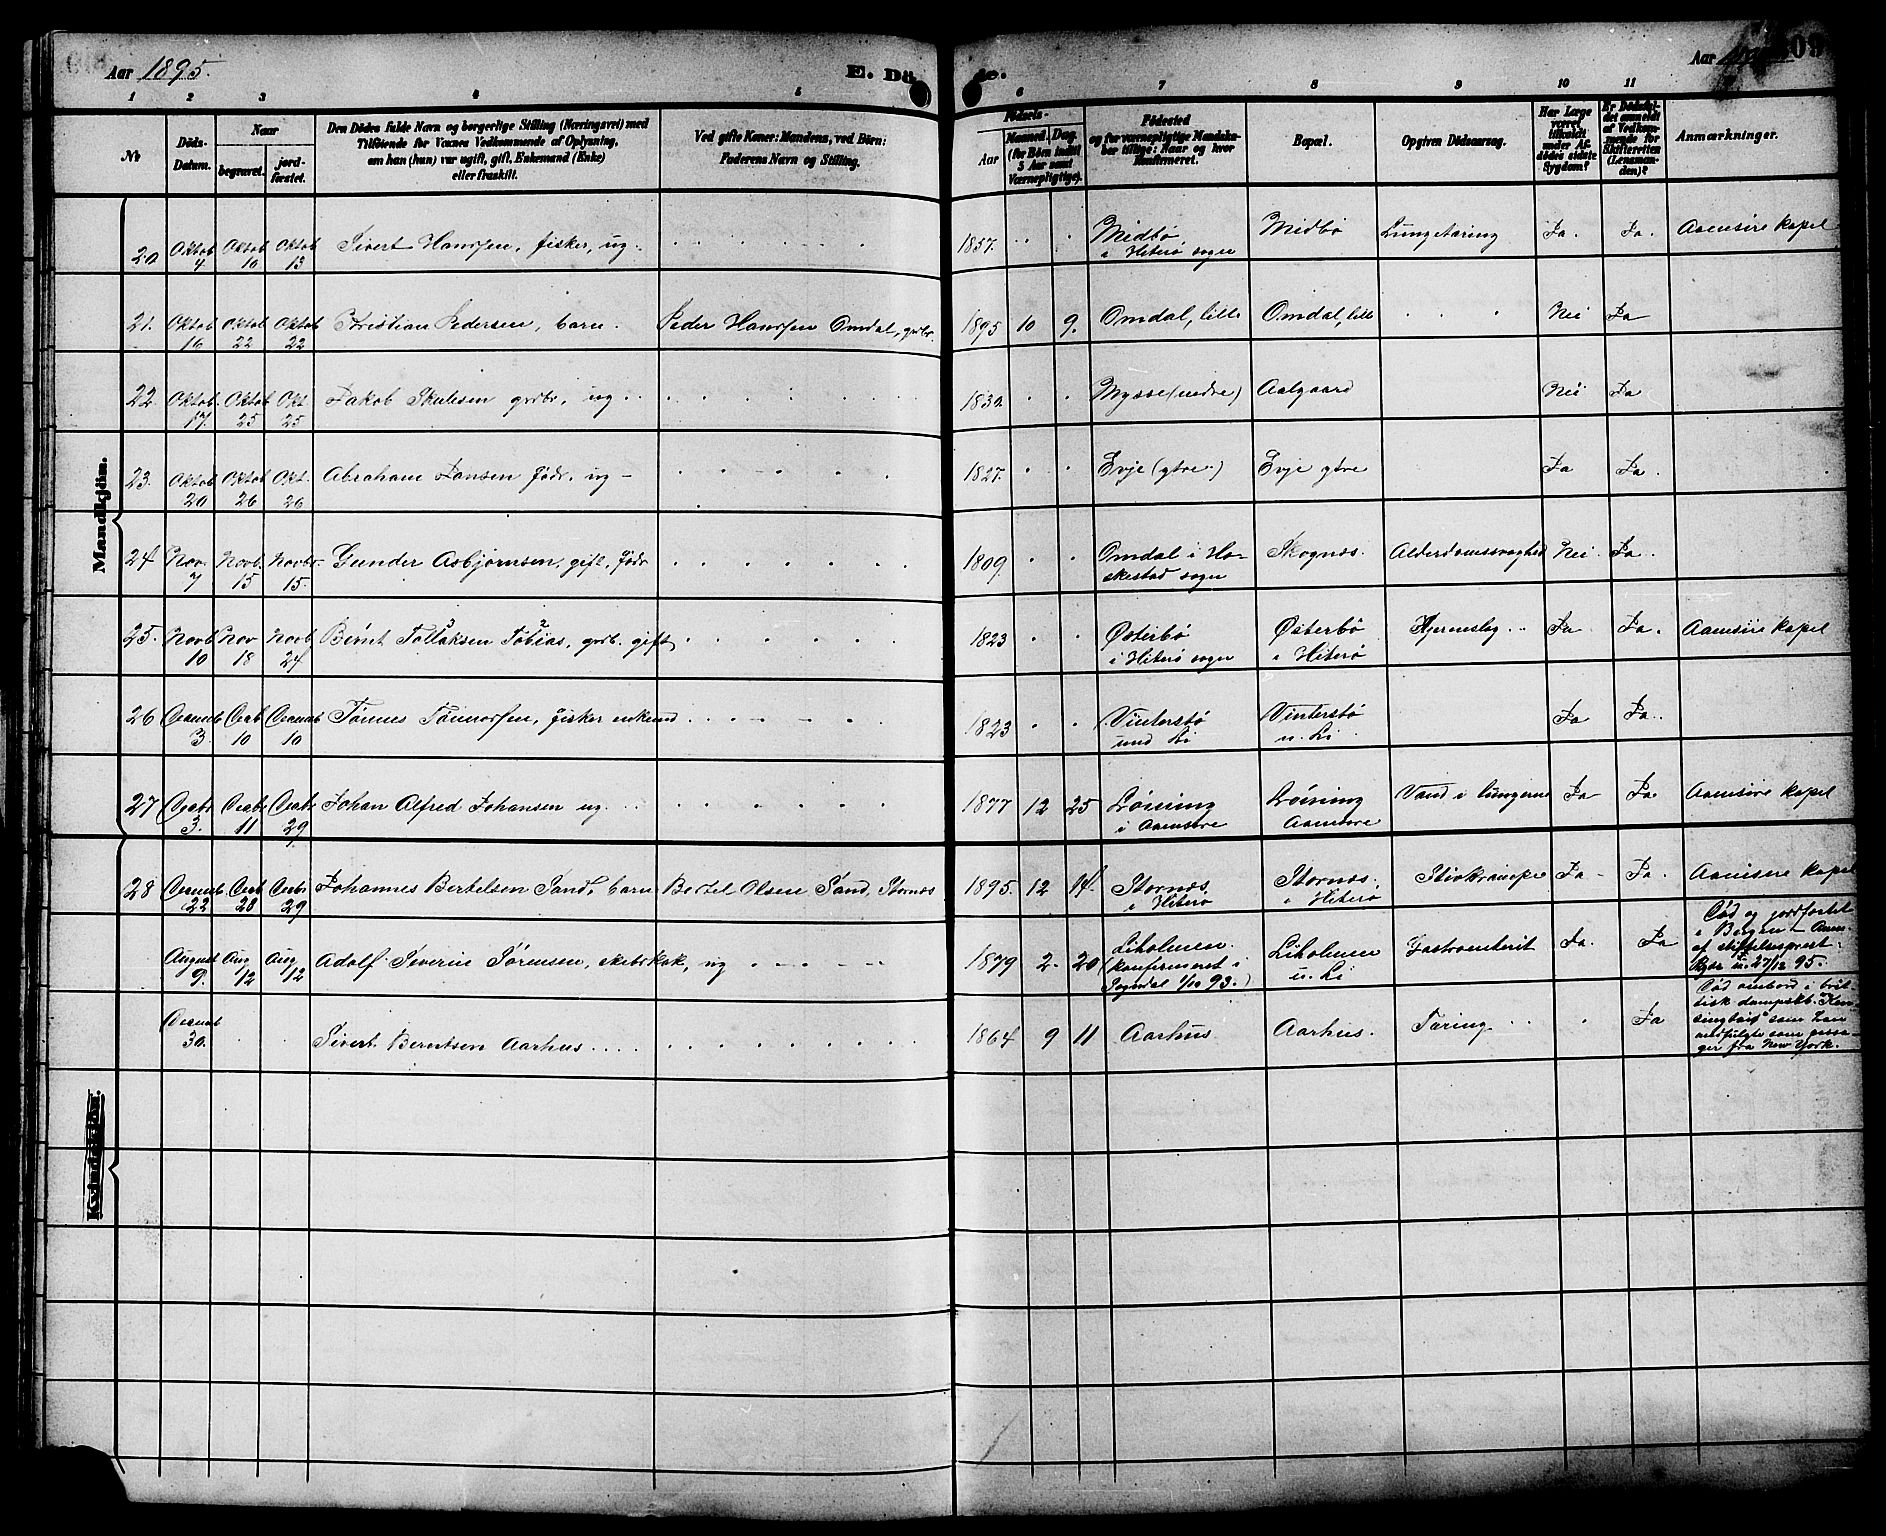 Aar 1895.
E. Dö
de.
Aar
09
1 2 3 4 5 6 7 8 9 10 11
No
Döds-Datum.
Naar
begravet.
jordfæstet.
Den Dödes fulde Navn og borgerlige Stilling (Næringsvei) med
Tilföiende for Voxnes Vedkommende af Oplysning,
om han (hun) var ugift, gift, Enkemand (Enke)
eller fraskilt.
Ved gifte Koner: Mandens, ved Börn:
Faderens Navn og Stilling.
Födsels-
Aar
Maaned. Dag.
(for Börn indtil
5 Aar samt
Værnepligtige).
Födested
og for værnepligtige Mandskaber tillige: Naar og hvor
konfirmeret.
Bopæl.
Opgiven Dödsaarsag.
Har Læge
været
tilkaldt
under Afdödes sidste
Sygdom?
Er Dödsfaldet anmeldt
af Vedkommende for
Skifteretten
(Lensmanden)?
Anmærkninger.
Mandkjön.
20 Oktob 4 Oktob 10 Oktob 13 Sivert Hanssen, fisker, ug. 1857. Midbø i Hiterø sogn Midbø Lungetæring Ja. Ja. Aamsire kapel
21. Oktob 16 Oktob 22 Oktob 22 Christian Pedersen, barn. Peder Hanssen Omdal, grdbr. 1895 10 9. Omdal, lille Omdal, lille Nei Ja
22. Oktob. 17. Oktob 25 Okt 25 Jakob Skulesen grdbr, ug 1830 Mysse (nedre) Aalgaard Nei Ja
23. Oktob 20 Oktob 26 Okt. 26 Abraham Jansen føder, ug - 1827. Evje (ytre) Evje ytre Ja Ja.
24 Nov. 7 Novb. 15 Novbr. 15. Gunder Asbjørnsen, gift, føder 1809. Omdal i Hæskestad sogn Skognæs. Alderdomssvaghed Nei Ja.
25. Novb 10 Nov 18 Novb 24 Bernt Tollaksen Tobias, grdb. gift 1823 Østerbø i Hiterø sogn Østerbø i Hiterø Hjerneslag Ja Ja. Aamsire kapel
26 Decemb 3. Decb 10 Decemb 10 Tønnes Tønnessen, fisker enkemd 1823 Vintersbø und Li Vintersbø u. Li Ja Ja
27 Decbr 3. Decbr 11 Decbr 29 Johan Alfred Johansen ug. 1877 12 25 Løining i Aamsire Løining Aamsire Vand i lungerne Ja Ja. Aamsire kapel
28 Decemb 22 Decb 28 Decbr 29 Johannes Bertelsen Sand, barn Bertel Olsen Sand, Stornæs 1895. 12 14. Stornæs. i Hiterø Stornæs. i Hiterø Stivkrampe Ja - Ja. Aamsire kapel
August 9. Aug 12 Aug 12 Adolf Severin Sørensen, skibskok, ug 1879 2. 20 Liholmen. (konfirmeret i Sogndal 1/10 93.) Liholmen u. Li Gastroenterit Ja. Ja Død og jordfæstet i Bergen Anm. af stiftelsesprest 27/12 95.
Decemb 30. Sivert Berentsen Aarhus 1864 9 11 Aarhus Aarhus. Tæring Ja Død ombord i britisk dampskb. "Kensington" som han medfulgte som passager fra New York.
Kvindekjön.